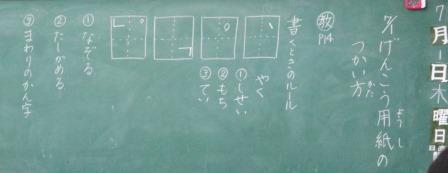 7月1日木曜日
7/1げんこう用紙の
ようし
つかい方
かた
教 P14
書くときのルール
やく
①しせい
②もち
③てい
①なぞる
②たしかめる
③まわりのかん字